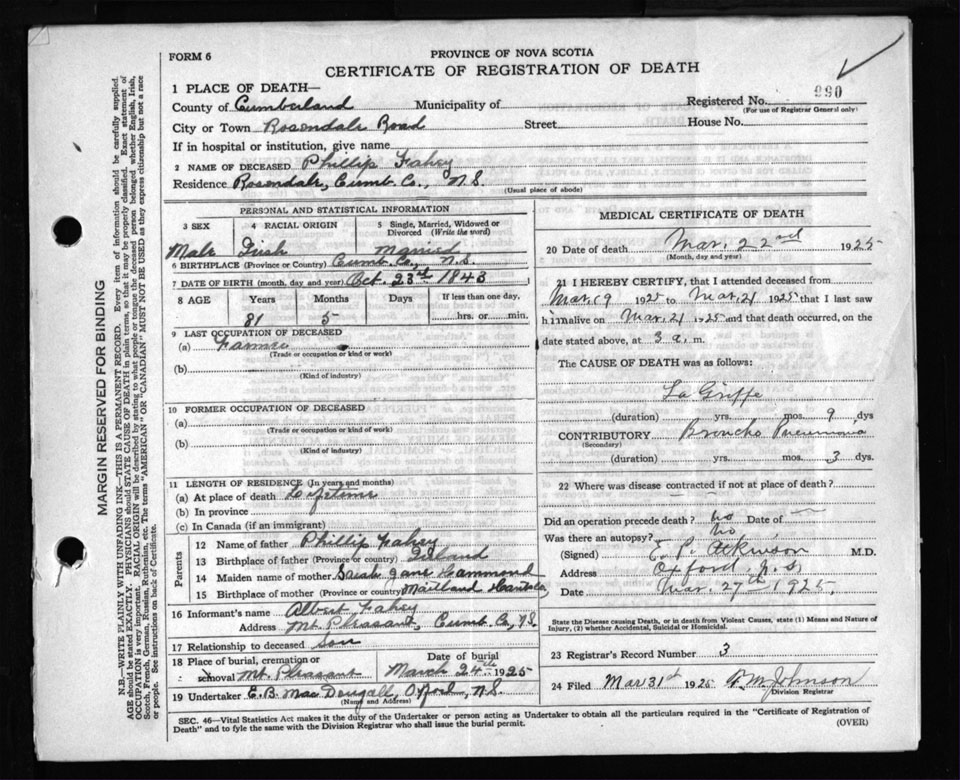 FORM 6
PROVINCE OF NOVA SCOTIA
CERTIFICATE OF REGISTRATION OF DEATH
1 PLACE OF DEATH—
Registered No. 990
(For use of Registrar General only)
County of Cumberland Municipality of
City or Town Rosendale Road Street House No.
If in hospital or institution, give name
2 NAME OF DECEASED Phillip Fahey
Residence Rosendale, Cumb. Co., N.S.
(Usual place of abode)
PERSONAL AND STATISTICAL INFORMATION
3 SEX 4 RACIAL ORIGIN 5 Single, Married, Widowed or Divorced (Write the word)
Male Irish Married
6 BIRTHPLACE (Province or Country) Cumb. Co., N.S.
7 DATE OF BIRTH (month, day and year) Oct. 23rd 1843
8 AGE Years Months Days If less than one day,
81 5 hrs. or min.
9 LAST OCCUPATION OF DECEASED
(a) Farmer
(Trade or occupation or kind or work)
(b)
(Kind of industry)
10 FORMER OCCUPATION OF DECEASED
(a)
(Trade or occupation or kind of work)
(b)
(Kind of industry)
11 LENGTH OF RESIDENCE (In years and months)
(a) At place of death Lifetime
(b) In province
(c) In Canada (if an immigrant)
Parents
12 Name of father Phillip Fahey
13 Birthplace of father (Province or country) Ireland
14 Maiden name of mother Sarah Jane Hammond
15 Birthplace of mother (Province or country) Maitland Hants Co
16 Informant's name Albert Fahey
Address Mt. Pleasant, Cumb. Co., N.S.
17 Relationship to deceased Son
18 Place of burial, cremation or removal Mt. Pleasant
Date of burial March 24th 1925
19 Undertaker E. B. MacDougall, Oxford, N.S.
(Name and Address)
MEDICAL CERTIFICATE OF DEATH
20 Date of death Mar. 22nd 1925
(Month, day and year)
21 I HEREBY CERTIFY, that I attended deceased from
Mar. 19 1925 to Mar. 21 1925 that I last saw
him alive on Mar. 21 1925 and that death occurred, on
date stated above, at 3 a. m.
The CAUSE OF DEATH was as follows:
La Grippe
(duration) yrs. mos. 9 dys
CONTRIBUTORY Broncho Pneumonia
(Secondary)
(duration) yrs. mos. 3 dys.
22 Where was disease contracted if not at place of death?
Did an operation precede death? no Date of
Was there an autopsy? No
(Signed) E. P. Atkinson M.D.
Address Oxford, N.S.
Date Mar. 27th 1925.
State the Disease causing Death, or in death from Violent Causes, state (1) Means and Nature of
Injury, (2) whether Accidental, Suicidal or Homicidal.
23 Registrar's Record Number 3
24 Filed Mar 31st 1925 Johnson
Division Registrar
SEC. 46—Vital Statistics Act makes it the duty of the Undertaker or person acting as Undertaker to obtain all the particulars required in the "Certificate of Registration of
Death" and to fyle the same with the Division Registrar who shall issue the burial permit. (OVER)
MARGIN RESERVED FOR BINDING
N.B.—WRITE PLAINLY WITH UNFADING INK—THIS IS A PERMANENT RECORD. Every item of Information should be carefully supplied.
AGE should be stated EXACTLY. PHYSICIANS should STATE CAUSE OF DEATH in plain terms, so that it may be properly classified. Exact statement of
OCCUPATION is very important. RACIAL ORIGIN will be described by stating to what people or tongue the deceased person belonged whether English, Irish,
Scotch, French, German, Russian, Ruthenian, etc. The terms "AMERICAN" OR "CANADIAN" MUST NOT BE USED as they express citizenship but not a race
or people. See instructions on back of Certificate.